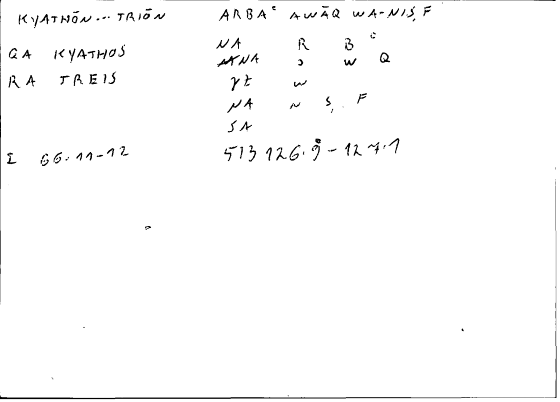 KYATHŌN...TRIŌN ARBAʿ AWĀQ WA-NIṢF
GA KYATHOS NA R B ʿ
RA TREIS NA ɔ W Q
γt w
NA N Ṣ F
SA
Σ 66.11-12 513 126.9-127.1